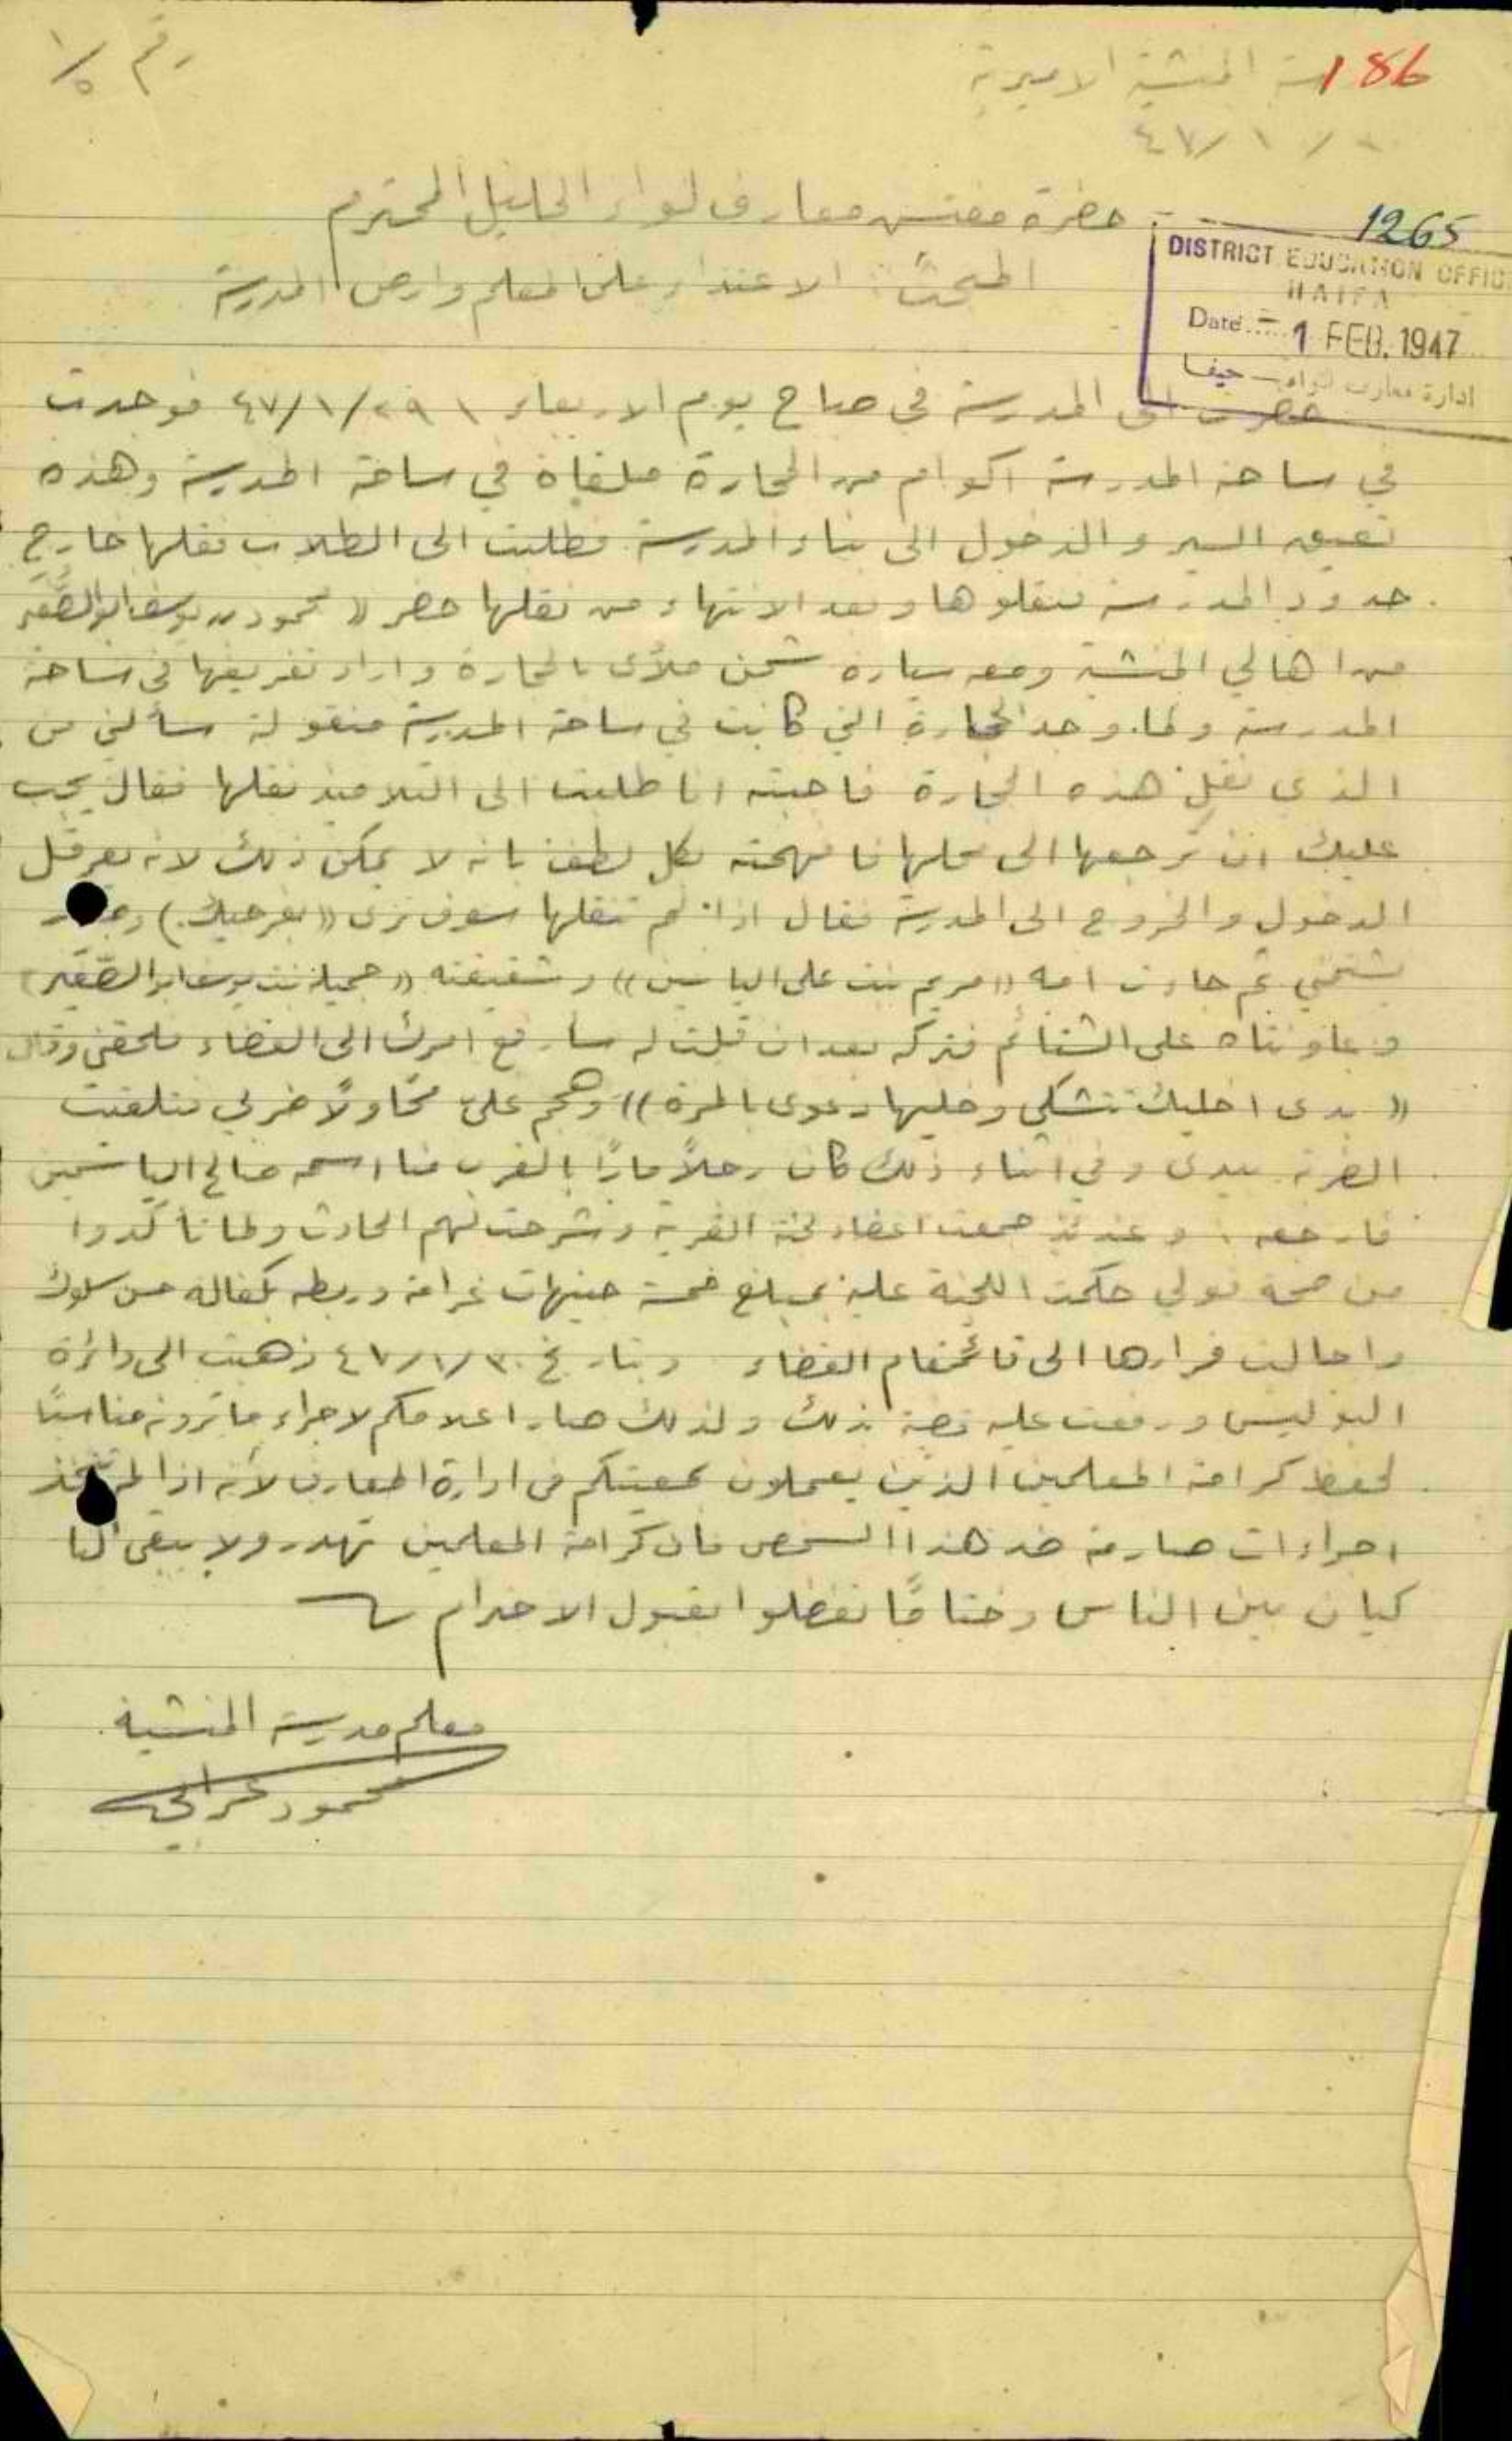 186
رقم ٥/١
المنشية الاميرية
٤٧/١/
حضرة مفتش معارف لواء الجليل المحترم
1265
DISTRICT EDUCATION OFFIC
HAIFA
Date..... - 1 FEB. 1947
ادارة معارف لواء حيفا
المبحث: الاعتداء على المعلم وارض المدرسة
حضرت الى المدرسة في صباح يوم الاربعاء ٤٧/١/٢٩ فوجدت
في ساحة المدرسة اكوام من الحجارة ملقاة في ساحة المدرسة وهذه
تعيق السير والدخول الى بناء المدرسة فطلبت الى الطلاب نقلها خارج
حدود المدرسة فنقلوها وبعد الانتهاء من نقلها حضر (( محمود يوسف ابو الصقير
من اهالي المنشية ومعه سيارة شحن ملأى بالحجارة واراد تفريغها في ساحة
المدرسة ولما وجد الحجارة التي كانت في ساحة المدرسة منقولة سألني من
الذي نقل هذه الحجارة فاجبته انا طلبت الى التلاميذ نقلها فقال يجب
عليك ان ترجعها الى محلها فافهمته بكل لطف بانه لا يمكن ذلك لانه يعرقل
الدخول والخروج الى المدرسة فقال اذا لم تنقلها سوف ترى ((بفرجيك))
يشتمني ثم جاءت امه ((مريم بنت علي الياسين)) وشقيقته ((جميلة بنت يوسف ابو الصقير))
وعاونتاه على الشتائم فتركه بعد ان قلت له سأرفع امرك الى القضاء فلحقني وقال
(( بدي اخليك تشكي وخليها دعوى بالمرة)) وهجم عليّ محاولاً ضربي فتلقيت
الضربة بيدي وفي اثناء ذلك كان رجلاً ماراً بالقرب منا اسمه صالح الياسين
فارجعه . وعندئذ جمعت اعضاء لجنة القرية وشرحت لهم الحادث ولما تأكدوا
من صحة قولي حكمت اللجنة عليه بمبلغ خمسة جنيهات غرامة وربطه بكفالة حسن سلوك
واحالت قرارها الى قائمقام القضاء وبتاريخ ٤٧/١/٣٠ ذهبت الى دائرة
البوليس ورفعت عليه قضية بذلك ولذلك صار اعلامكم لاجراء ما ترونه مناسباً
لحفظ كرامة المعلمين الذين يعملون بمعيتكم في ادارة المعارف لأنه اذا لم تتخذ
اجراءات صارمة ضد هذا الشخص فان كرامة المعلمين تهدر ولا يبقى لنا
كيان بين الناس وختاماً تفضلوا بقبول الاحترام
معلم مدرسة المنشية
محمود عرابي